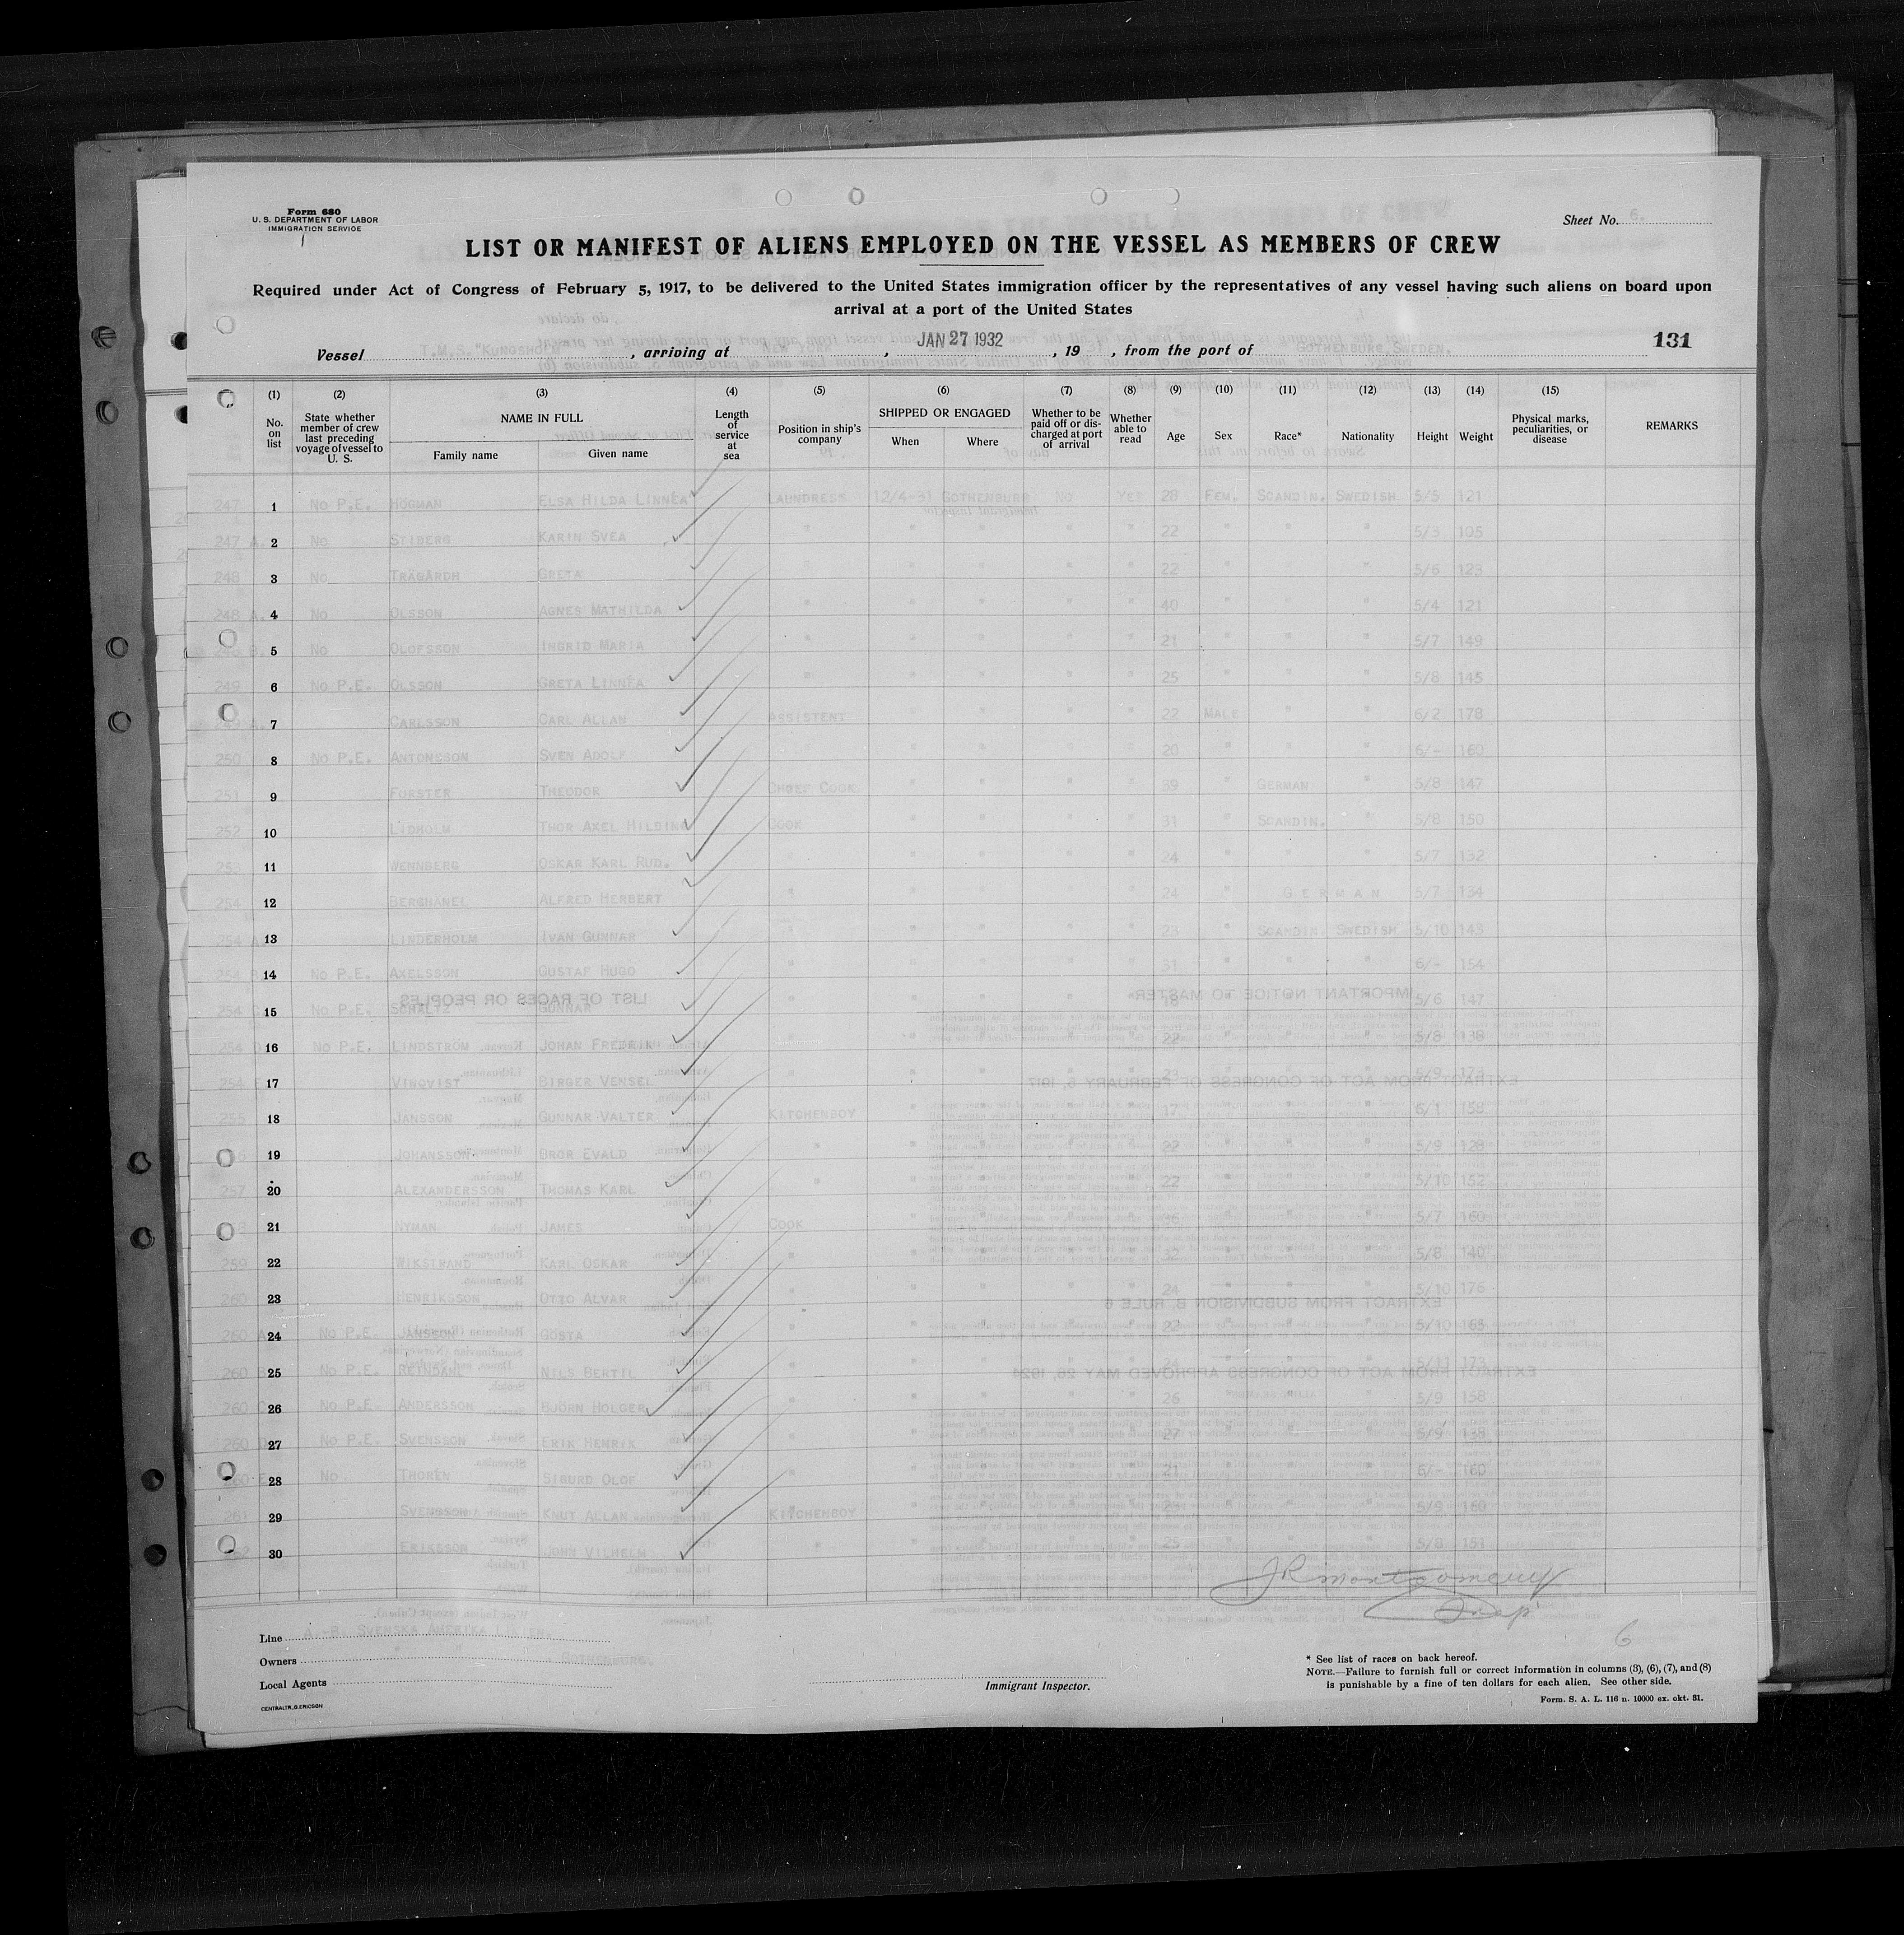 Form 680
U. S. DEPARTMENT OF LABOR
IMMIGRATION SERVICE
Sheet No. 6.
LIST OR MANIFEST OF ALIENS EMPLOYED ON THE VESSEL AS MEMBERS OF CREW
Required under Act of Congress of February 5, 1917, to be delivered to the United States immigration officer by the representatives of any vessel having such aliens on board upon
arrival at a port of the United States
Vessel T.M.S."KUNGSHOLM" , arriving at , JAN 27 1932 , 19 , from the port of GOTHENBURG, SWEDEN.
131
(1) (2) (3) (4) (5) (6) (7) (8) (9) (10) (11) (12) (13) (14) (15)
No. on list
State whether member of crew last preceding voyage of vessel to U. S.
NAME IN FULL
Family name
Given name
Length of service at sea
Position in ship's company
SHIPPED OR ENGAGED
When
Where
Whether to be paid off or discharged at port of arrival
Whether able to read
Age
Sex
Race*
Nationality
Height
Weight
Physical marks, peculiarities, or disease
REMARKS
247 1 NO P.E. HÖGMAN ELSA HILDA LINNÉA LAUNDRESS 12/4-31 GOTHENBURG NO YES 28 FEM. SCANDIN. SWEDISH 5/5 121
247 A. 2 NO STIBERG KARIN SVEA " " " " " 22 " " " 5/3 105
248 3 NO TRÄGÅRDH GRETA " " " " " 22 " " " 5/6 123
248 A. 4 NO OLSSON AGNES MATHILDA " " " " " 40 " " " 5/4 121
5 NO OLOFSSON INGRID MARIA " " " " " 21 " " " 5/7 149
249 6 NO P.E. OLSSON GRETA LINNÉA " " " " " 25 " " " 5/8 145
7 CARLSSON CARL ALLAN ASSISTENT " " " " 22 MALE " " 6/2 178
250 8 NO P.E. ANTONSSON SVEN ADOLF " " " " " 20 " " " 6/- 160
251 9 FORSTER THEODOR CHIEF COOK " " " " 39 " GERMAN " 5/8 147
252 10 LIDHOLM THOR AXEL HILDING COOK " " " " 31 " SCANDIN. " 5/8 150
253 11 WENNBERG OSKAR KARL RUD. " " " " " 24 " " " 5/7 132
254 12 BERGHÄNEL ALFRED HERBERT " " " " " 24 " GERMAN 5/7 134
254 13 LINDERHOLM IVAN GUNNAR " " " " " 23 " SCANDIN. SWEDISH 5/10 143
254 14 NO P.E. AXELSSON GUSTAF HUGO " " " " " 31 " " " 6/- 154
254 15 NO P.E. GUNNAR " " " " " " " " 5/6 147
254 16 NO P.E. LINDSTRÖM JOHAN FREDRIK " " " " " 22 " " " 5/8 138
254 17 VINQVIST BIRGER VENSEL " " " " " " " " 5/9
255 18 JANSSON GUNNAR VALTER KITCHENBOY " " " " 17 " " " 6/1 158
19 JOHANSSON BROR EVALD " " " " " 22 " " " 5/9 128
257 20 ALEXANDERSSON THOMAS KARL " " " " " 22 " " " 5/10 152
21 NYMAN JAMES COOK " " " " 36 " " " 5/7 160
259 22 WIKSTRAND KARL OSKAR " " " " " 32 " " " 5/8 140
260 23 HENRIKSSON OTTO ALVAR " " " " " 24 " " " 5/10 176
260 24 NO P.E. JANSSON GÖSTA " " " " " 22 " " " 5/10 165
260 25 NO P.E. NILS BERTIL " " " " " " " " 5/11 173
260 26 NO P.E. ANDERSSON BJÖRN HOLGER " " " " " 26 " " " 5/9 158
260 27 NO P.E. SVENSSON ERIK HENRIK " " " " " 27 " " " 5/9 138
28 NO THORÉN SIGURD OLOF " " " " " 21 " " " 6/- 160
261 29 SVENSSON KNUT ALLAN KITCHENBOY " " " " " " " 5/9 160
30 ERIKSSON JOHN VILHELM " " " " " 25 " " " 5/8 151
J R Montgomery
Insp
6
Line A.-B. SVENSKA AMERIKA LINIEN.
Owners " " GOTHENBURG.
Local Agents
CENTRALTR. G. ERICSON
Immigrant Inspector.
* See list of races on back hereof.
NOTE.—Failure to furnish full or correct information in columns (3), (6), (7), and (8)
is punishable by a fine of ten dollars for each alien. See other side.
Form. S. A. L. 116 n. 10000 ex. okt. 31.